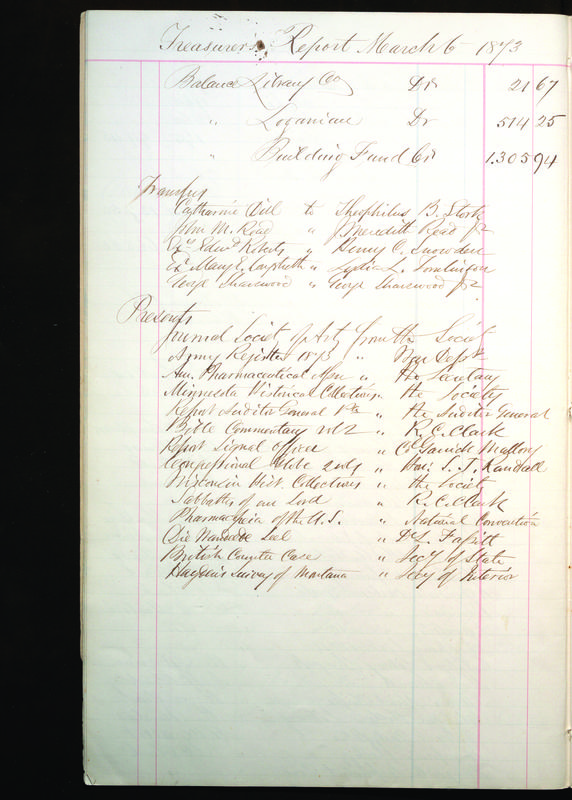 Treasurers Report March 6 1873
Balance Library Co Dr 21 67
" Loganian Dr 514 25
" Building Fund Cr 1.305 94
Transfers
Catharine Dill to Theophilus B. Stork
John M. Read " J Meredith Read Jr
Exs Edwd Roberts " Henry C. Snowden
Ex Mary E. " Lydia L. Tomlinson
George Sharswood " George Sharswood Jr
Presents
Journal Society of Arts from the Society
Army Register 1873 " War Dept
Am. Pharmaceutical Assn " the Secretary
Minnesota Historical Collections " the Society
Report Auditor General Pa " the Auditor General
Bible Commentary vol 2 " R. C. Clark
Report Signal Officer " Co Garrick Mallory
Congressional Globe 2 vols " Hon: S. J. Randall
Wisconsin Hist. Collections " the Society
Sabbaths of our Lord " R. C. Clark
Pharmacopoeia of the U. S. " National Convention
Die " Dr L. Fassitt
British Counter Case " Secy of State
Hayden's Survey of Montana " Secy of Interior